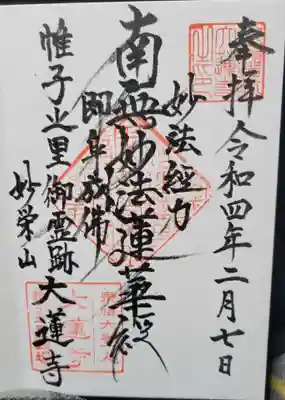 奉拝 令和四年二月七日
妙法経力
南無妙法蓮華経
即身成佛
帷子之里御霊跡 大蓮寺
妙栄山